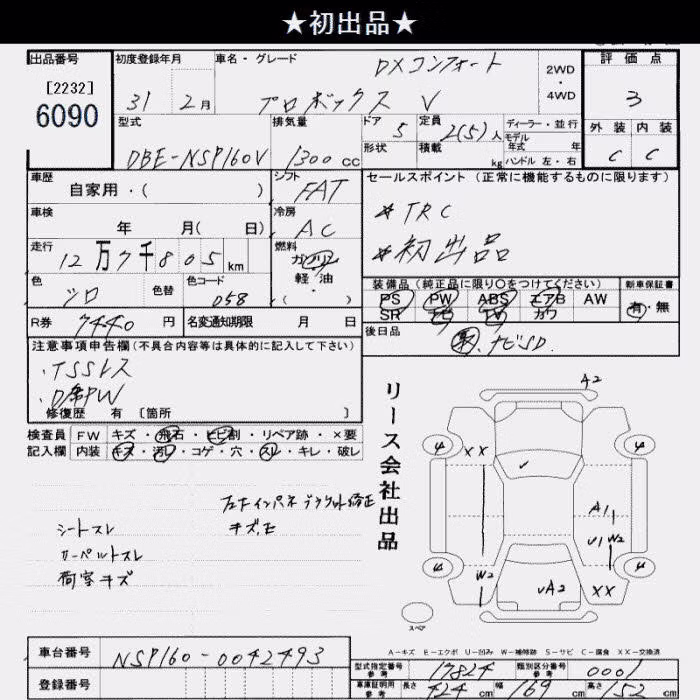 ★初出品★
出品番号 初度登録年月 車名・グレード DXコンフォート 2WD・4WD 評価点
[2232] 6090 31 2月 プロボックス V 3
型式 排気量 ドア 5 定員 2(5)人 ディーラー・並行 外装 内装
DBE-NSP160V 1300cc 形状 積載 kg モデル年式 年 ハンドル 左・右 C C
車歴 自家用・( ) シフト FAT セールスポイント (正常に機能するものに限ります)
車検 年 月( 日) 冷房 AC *TRC
走行 12万7千805km 燃料 ガソリン 軽・油 ・( ) *初出品
色 シロ 色替 色コード 058 装備品(純正品に限り○をつけてください) 新車保証書
PS PW ABS エアB AW 有・無
SR TV カワ
R券 7440円 名変通知期限 月 日 後日品
注意事項申告欄(不具合内容等は具体的に記入して下さい) ナビSD.
・TSSレス
・D席PW
修復歴 有 〔箇所 〕
検査員 FW キズ・飛石・ヒビ割・リペア跡・×要
記入欄 内装 キズ・汚レ・コゲ・穴・スレ・キレ・破レ
リース会社出品
A2
XX
A1
U1 W2
W2 UA2 XX
スペア
シートスレ
カーペットスレ
荷室キズ
A-キズ E-エクボ U-凹み W-補修跡 S-サビ C-腐食 XX-交換済
車台番号 NSP160-0042493 型式指定番号 参考 17824 類別区分番号 参考 0001
登録番号 車庫証明用 参考 長さ 424cm 幅 169cm 高さ 152cm